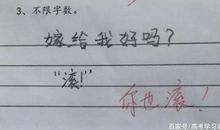 3、不限字数。
嫁给我好吗？
“滚！”
你也滚！
百家号/高考学习